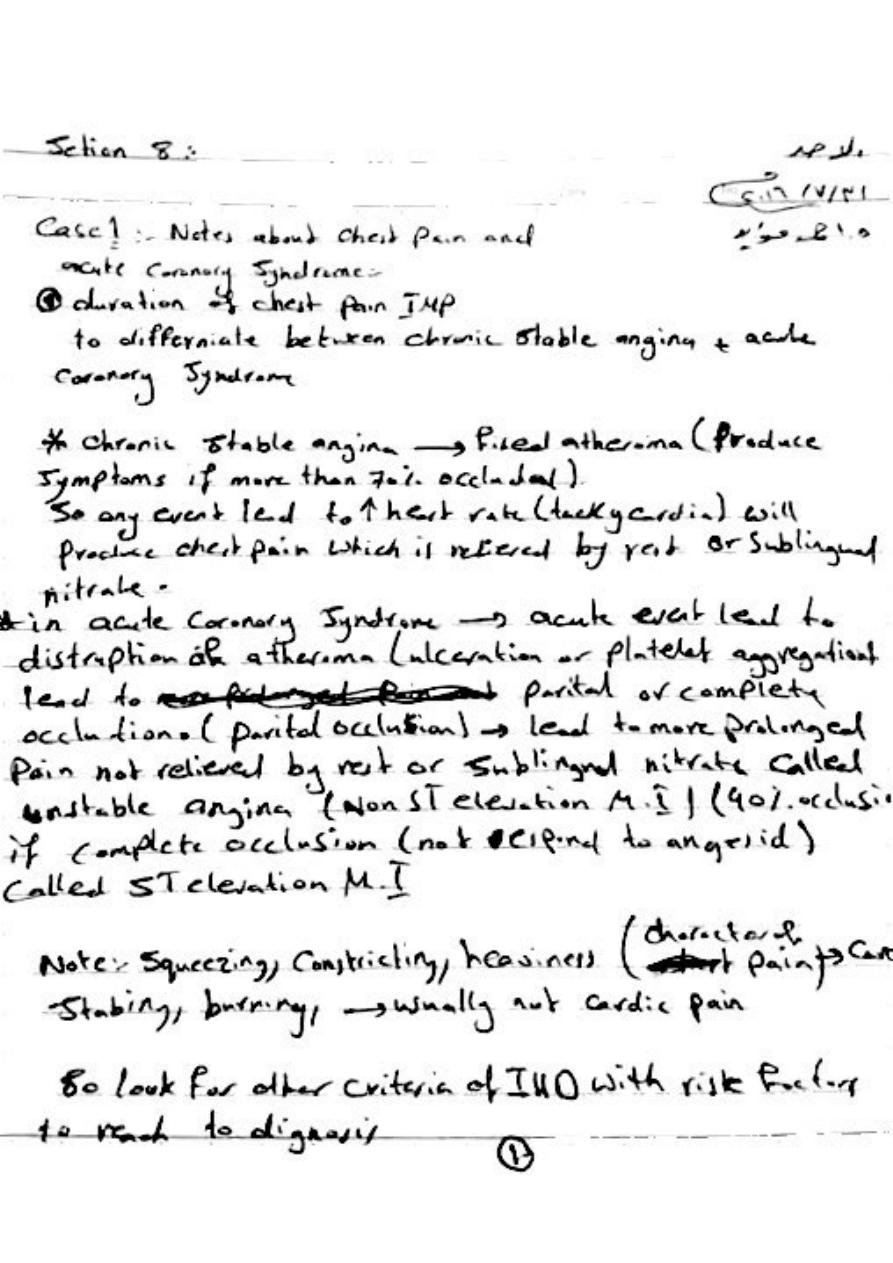 Section 8:
الاحد
٢٠١٦/٧/٣١
د. احمد مؤيد
Case 1 :- Notes about chest Pain and
acute Coronary Syndrome:-
duration of chest pain IMP
to differniate between chronic stable angina + acute
Coronary Syndrome
* chronic stable angina → fixed atheroma (Produce
Symptoms if more than 70% occluded)
So any event lead to ↑ heart rate (tackycardia) will
Produce chest pain which is relieved by rest or Sublingual
nitrate.
* in acute Coronary Syndrome → acute event lead to
distruption of atheroma (ulceration or Platelet aggregation)
lead to parital or complete
occlution. (parital occlusion) → lead to more prolonged
Pain not relieved by rest or Sublingual nitrate Called
unstable angina (Non ST elevation M.I) (90% occlusio
if complete occlusion (not respond to angesid)
Called ST elevation M.I
Note:- Squeezing, Constricting, heaviness (character of
pain) → Car
Stabing, burning, → usually not cardic pain
So look for other criteria of IHD with risk factors
to reach to dignosis
1